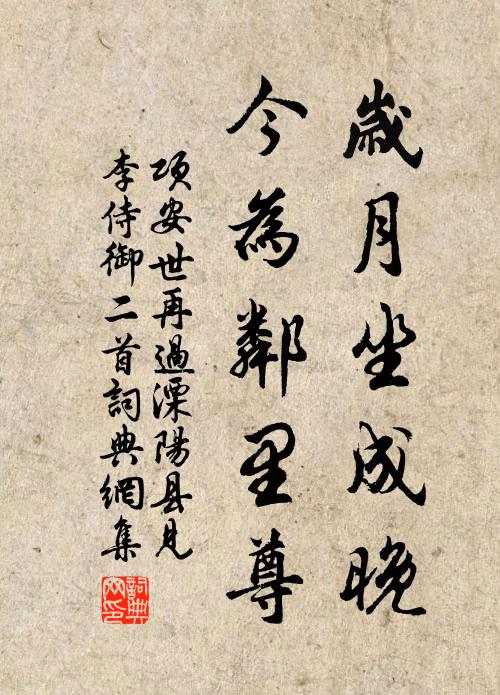 歲月坐成晚
今為鄰里尊
項安世再過溧陽县見
李侍御二首詞典網集
詞典
网印